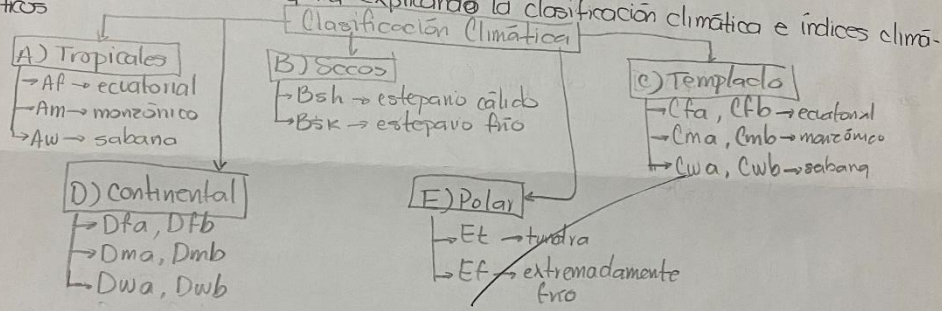 explicando la clasificación climática e índices climá-
ticos
Clasificación Climática
A) Tropicales
→ Af → ecuatorial
→ Am → monzónico
→ Aw → sabana
B) Secos
→ Bsh → estepario cálido
→ Bsk → estepavo frío
C) Templado
→ Cfa, Cfb → ecuatorial
→ Cma, Cmb → monzónico
→ Cwa, Cwb → sabana
D) Continental
→ Dfa, Dfb
→ Dma, Dmb
→ Dwa, Dwb
E) Polar
→ Et → tundra
→ Ef → extremadamente
frío